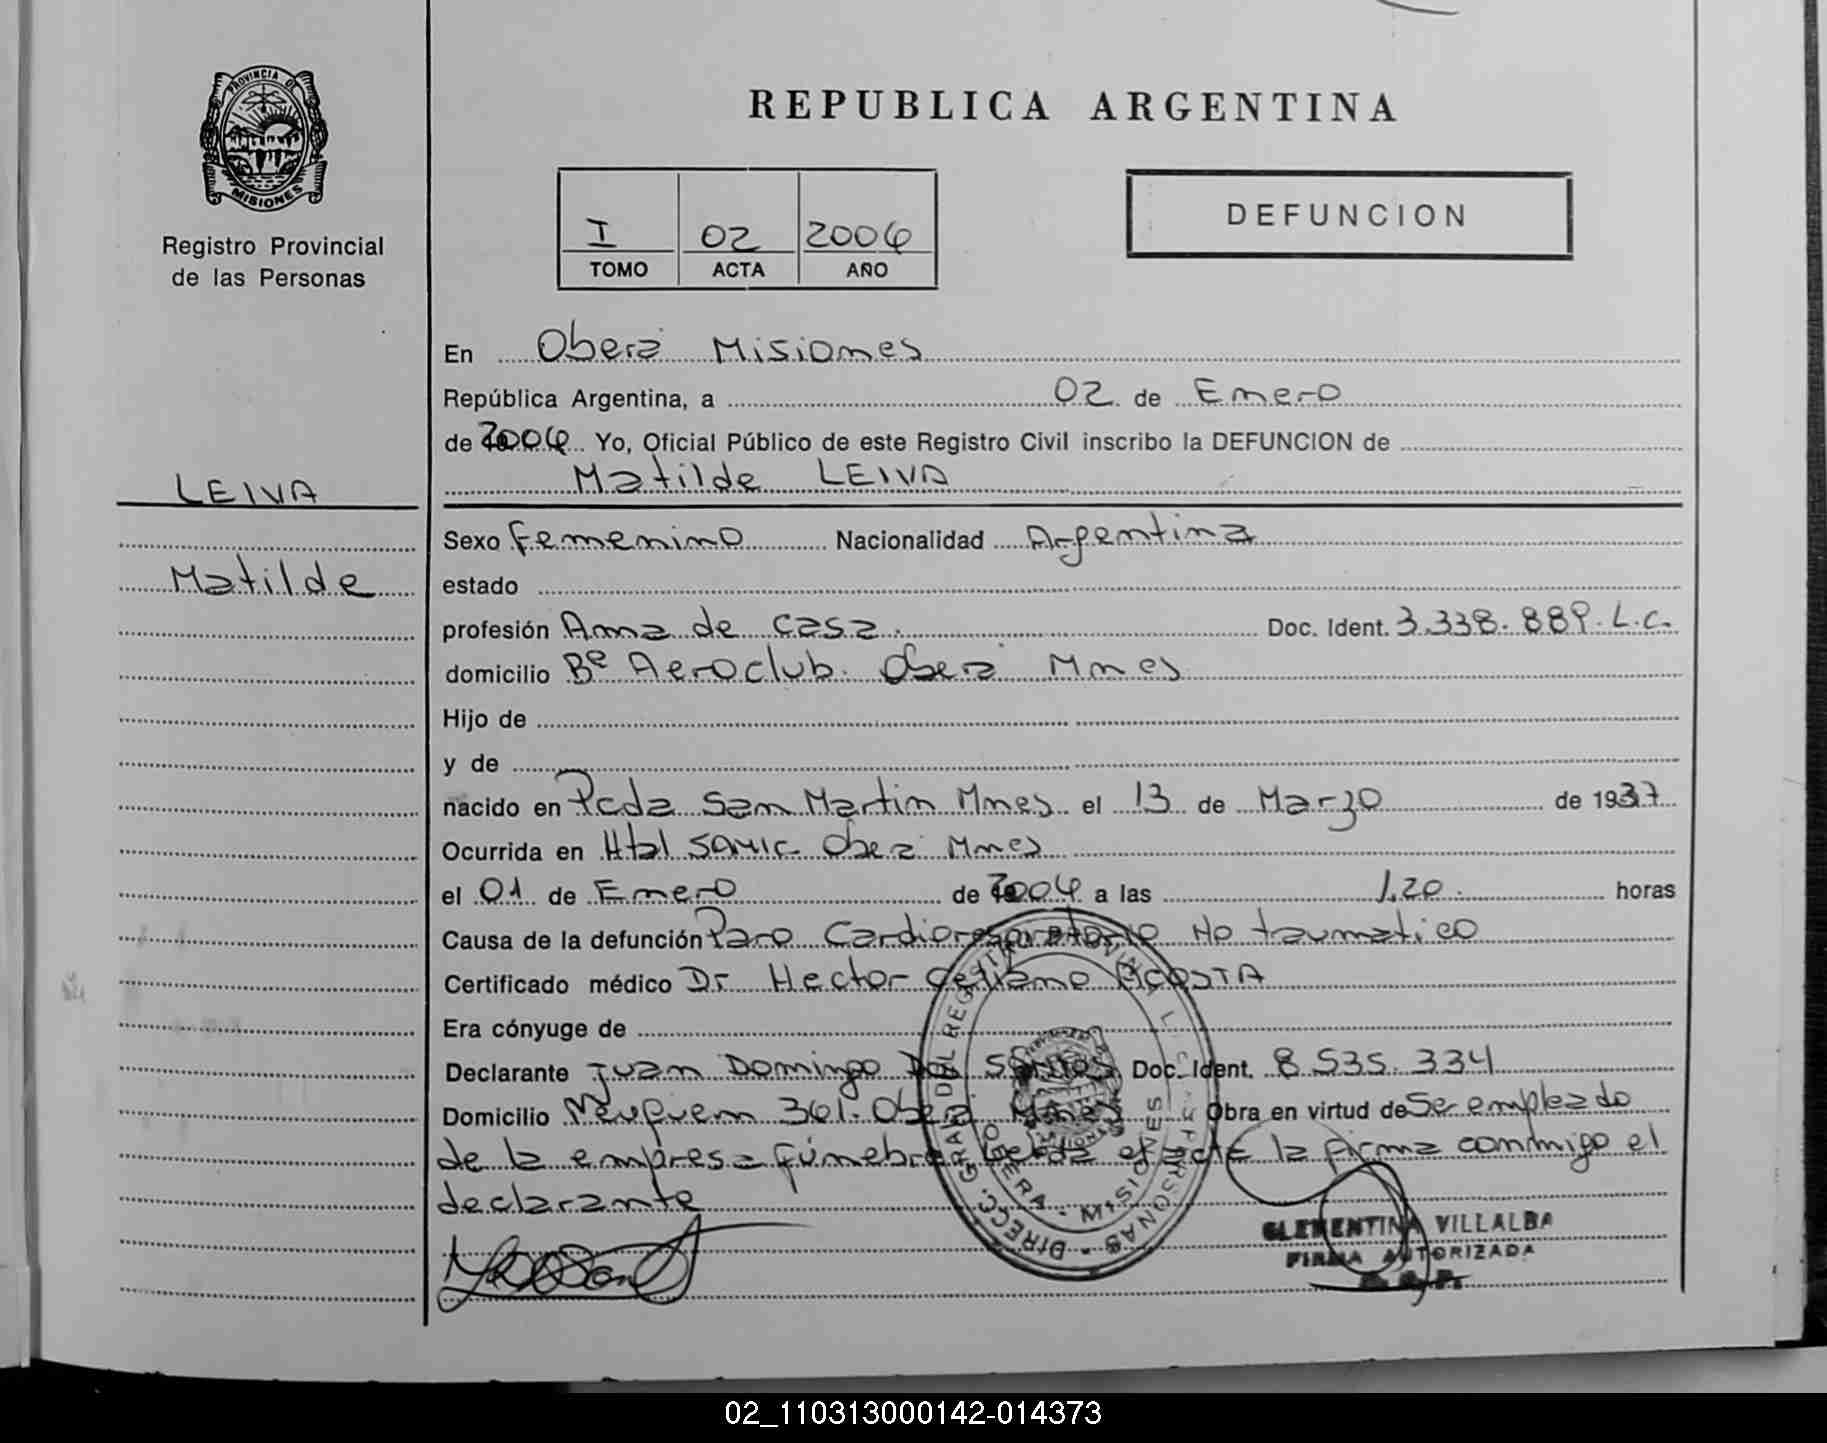 PROVINCIA DE
MISIONES
Registro Provincial
de las Personas
REPUBLICA ARGENTINA
I 02 2004
TOMO ACTA AÑO
DEFUNCION
En Oberá Misiones
República Argentina, a 02 de Enero
de 2004 Yo, Oficial Público de este Registro Civil inscribo la DEFUNCION de
Matilde LEIVA
LEIVA
Matilde
Sexo Femenino Nacionalidad Argentina
estado
profesión Ama de casa. Doc. Ident. 3.338.889.L.C.
domicilio Bº Aeroclub. Oberá Mnes
Hijo de
y de
nacido en Pcda San Martin Mnes el 13 de Marzo de 1937
Ocurrida en Htal SAMIC Oberá Mnes
el 01 de Enero de 2004 a las 1,20. horas
Causa de la defunción Paro Cardiorespiratorio No traumatico
Certificado médico Dr Hector ACOSTA
Era cónyuge de
Declarante Juan Domingo Dos Santos Doc. Ident. 8.535.334
Domicilio Neuquem 361. Oberá Mnes Obra en virtud de Ser empleado
de la empresa fúnebre la firma conmigo el
declarante
CLEMENTINA VILLALBA
FIRMA AUTORIZADA
02_110313000142-014373